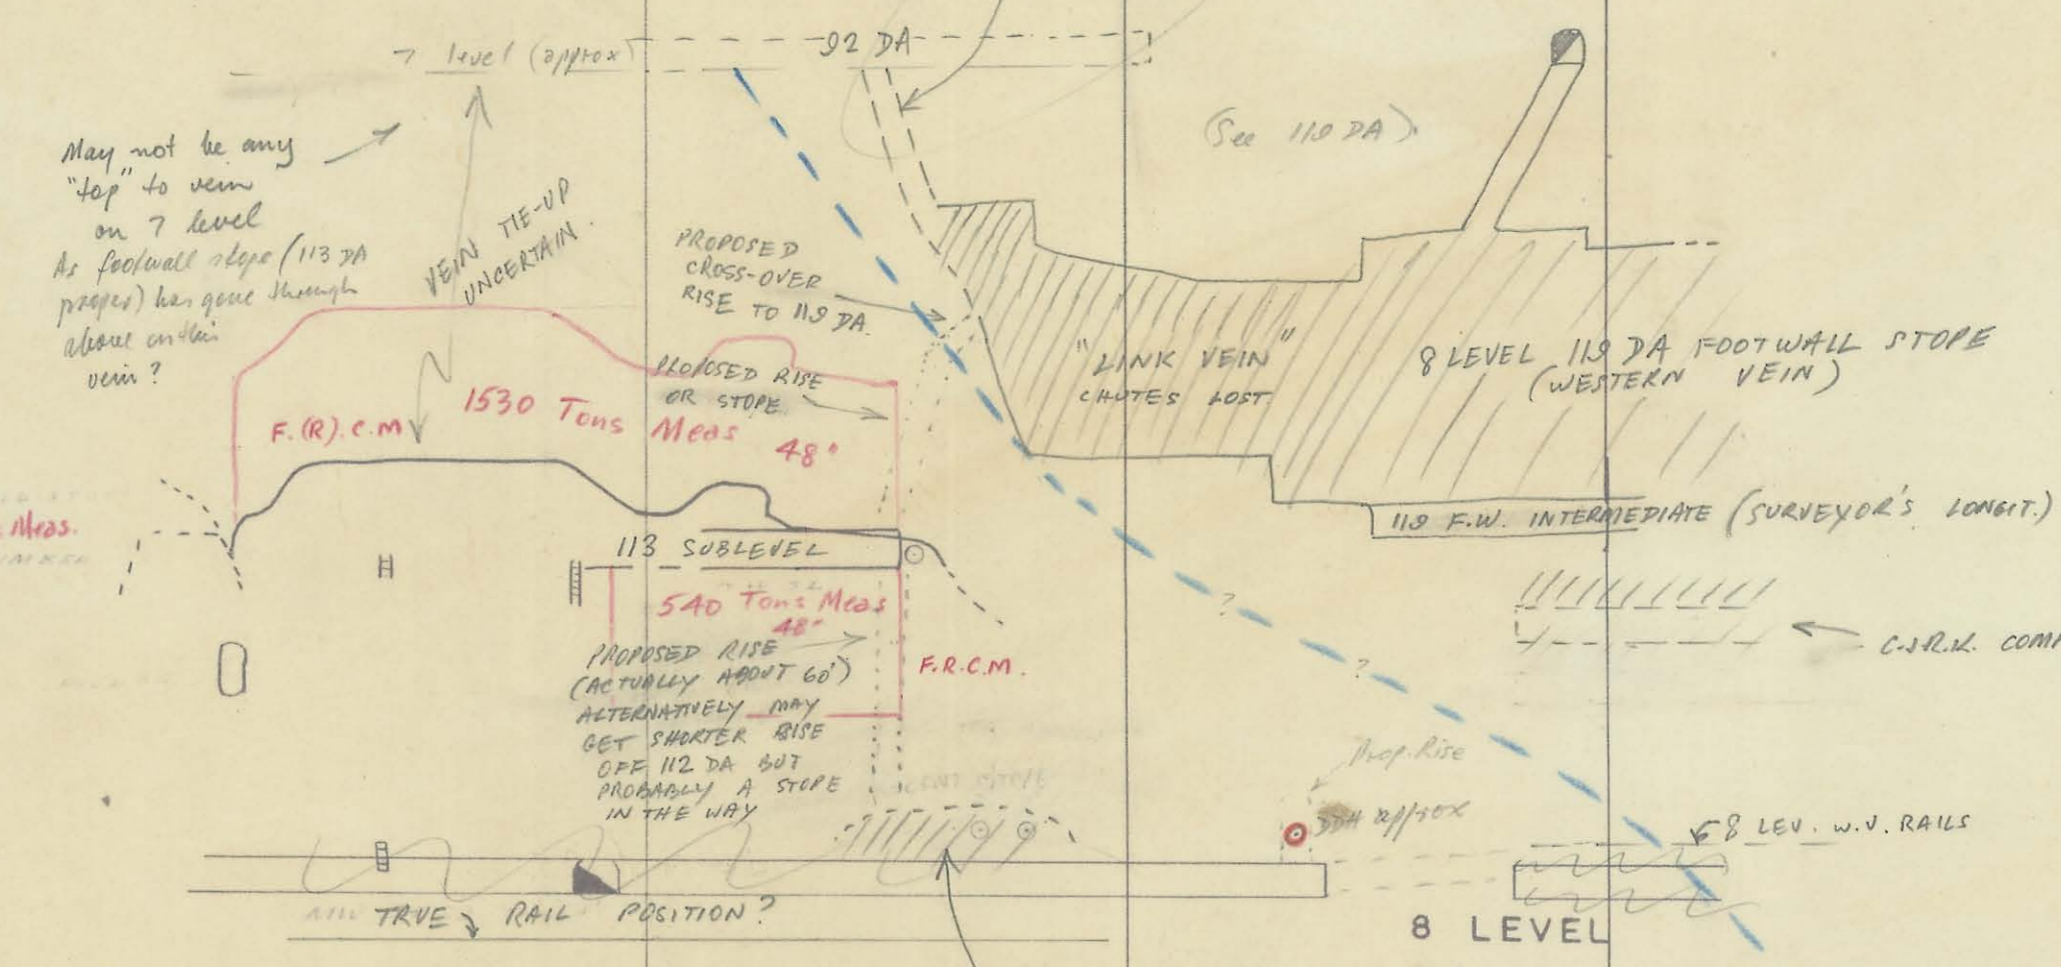 92 DA
7 level (approx)
(See 119 DA)
May not be any
"top" to vein
on 7 level
As footwall stope (113 DA
proper) has gone through
above on this
vein?
VEIN TIE-UP
UNCERTAIN.
PROPOSED
CROSS-OVER
RISE TO 119 DA.
"LINK VEIN"
CHUTES LOST.
8 LEVEL 119 DA FOOTWALL STOPE
(WESTERN VEIN)
PROPOSED RISE
OR STOPE
F.(R).C.M
1530 Tons Meas
48"
Meas.
119 F.W. INTERMEDIATE (SURVEYOR'S LONGIT.)
113 SUBLEVEL
540 Tons Meas
48"
PROPOSED RISE
(ACTUALLY ABOUT 60')
ALTERNATIVELY MAY
GET SHORTER RISE
OFF 112 DA BUT
PROBABLY A STOPE
IN THE WAY
F.R.C.M.
?
?
Prop. Rise
DDH approx
8 LEV. W.V. RAILS
TRUE RAIL POSITION?
8 LEVEL